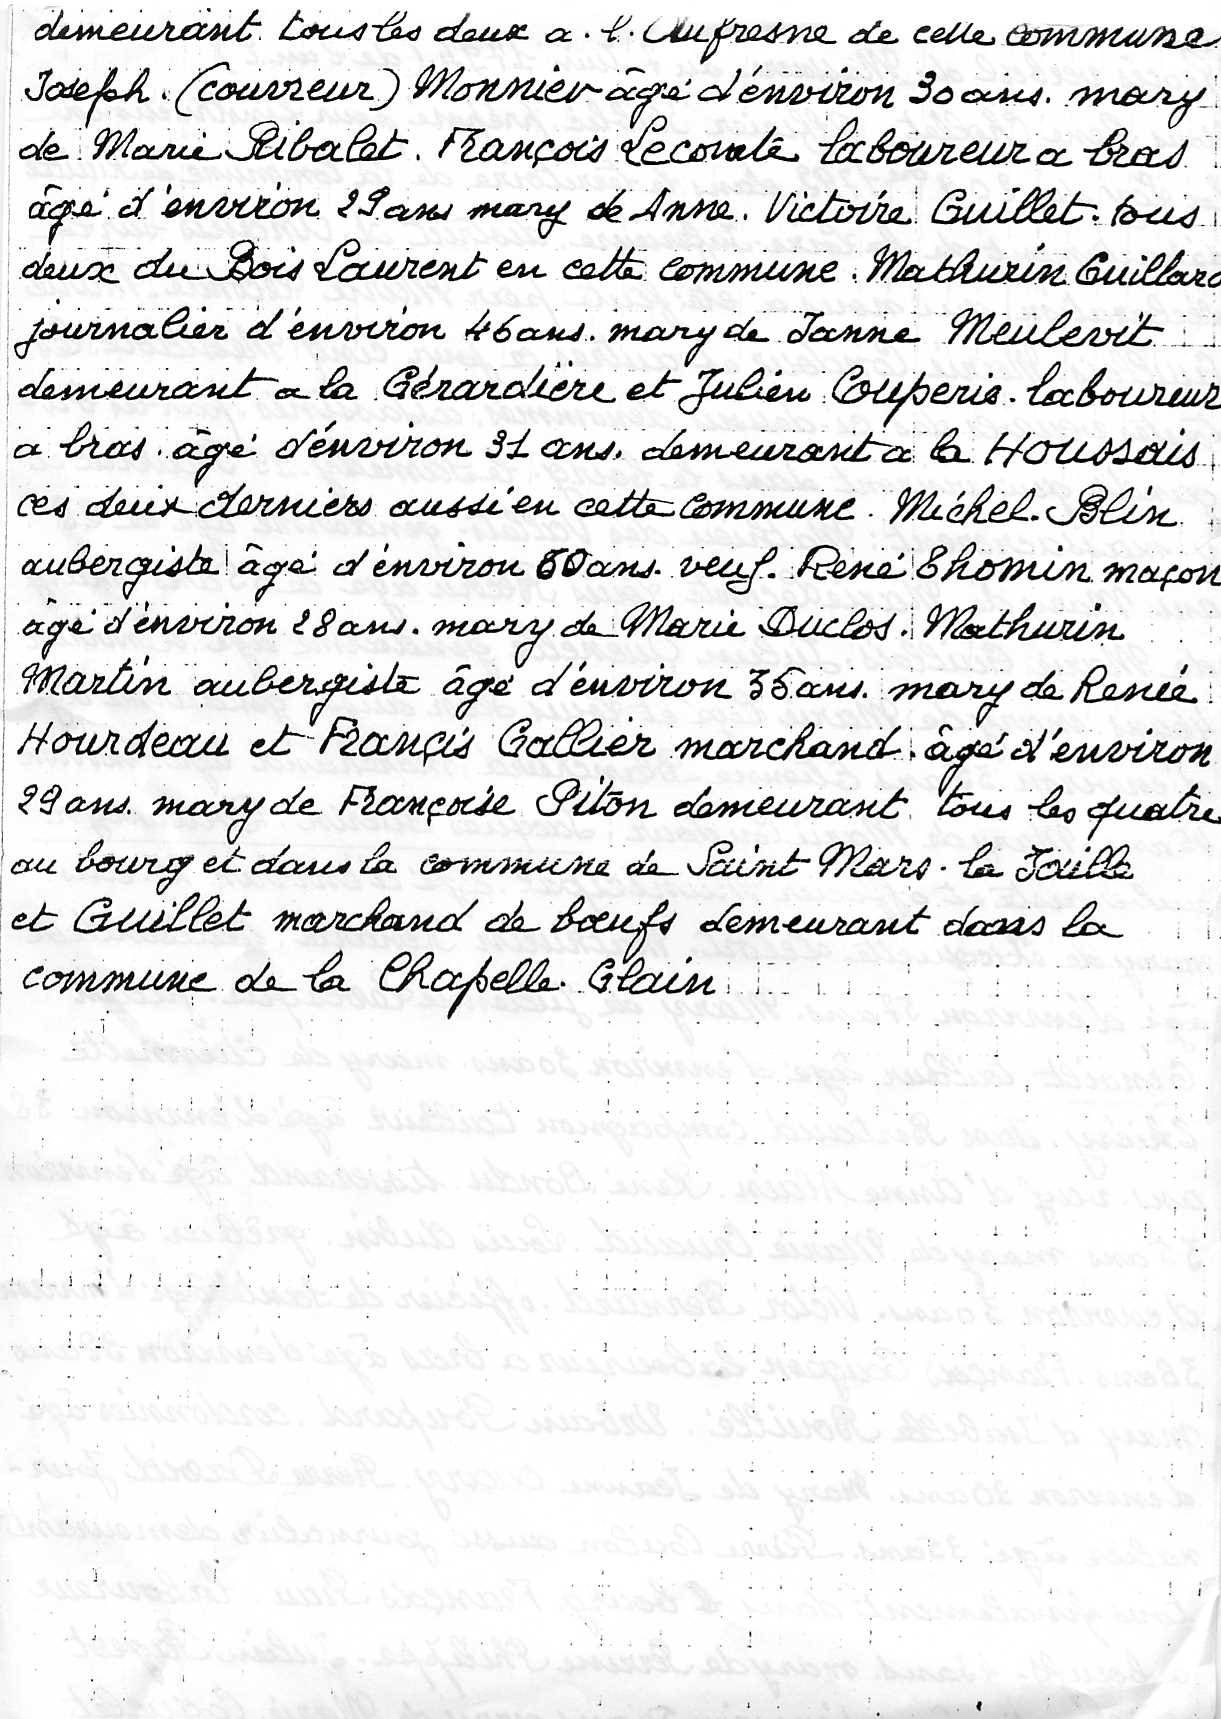 demeurant tous les deux a. l. Aufresne de cette commune
Joseph. (couvreur) Monnier âgé d'énviron 30 ans. mary
de Marie Ribalet. François Lecomte laboureur a bras
âgé d'énviron 29 ans mary de Anne. Victoire Guillet. tous
deux du Bois Laurent en cette commune. Mathurin Guillard
journalier d'énviron 46 ans. mary de Janne Meulevit
demeurant a la Gérardière et Julien Couperie. laboureur
a bras. âgé d'énviron 31 ans. demeurant a la Houssais
ces deux derniers aussi en cette commune. Michel. Blin
aubergiste âgé d'énviron 60 ans. veuf. René Thomin maçon
âgé d'énviron 28 ans. mary de Marie Duclos. Mathurin
Martin aubergiste âgé d'énviron 35 ans. mary de Renée
Hourdeau et Françis Gallier marchand. âgé d'environ
29 ans. mary de Françoise Piton demeurant tous les quatre
au bourg et dans la commune de Saint Mars. la Jaille
et Guillet marchand de bœufs demeurant dans la
commune de la Chapelle. Glain